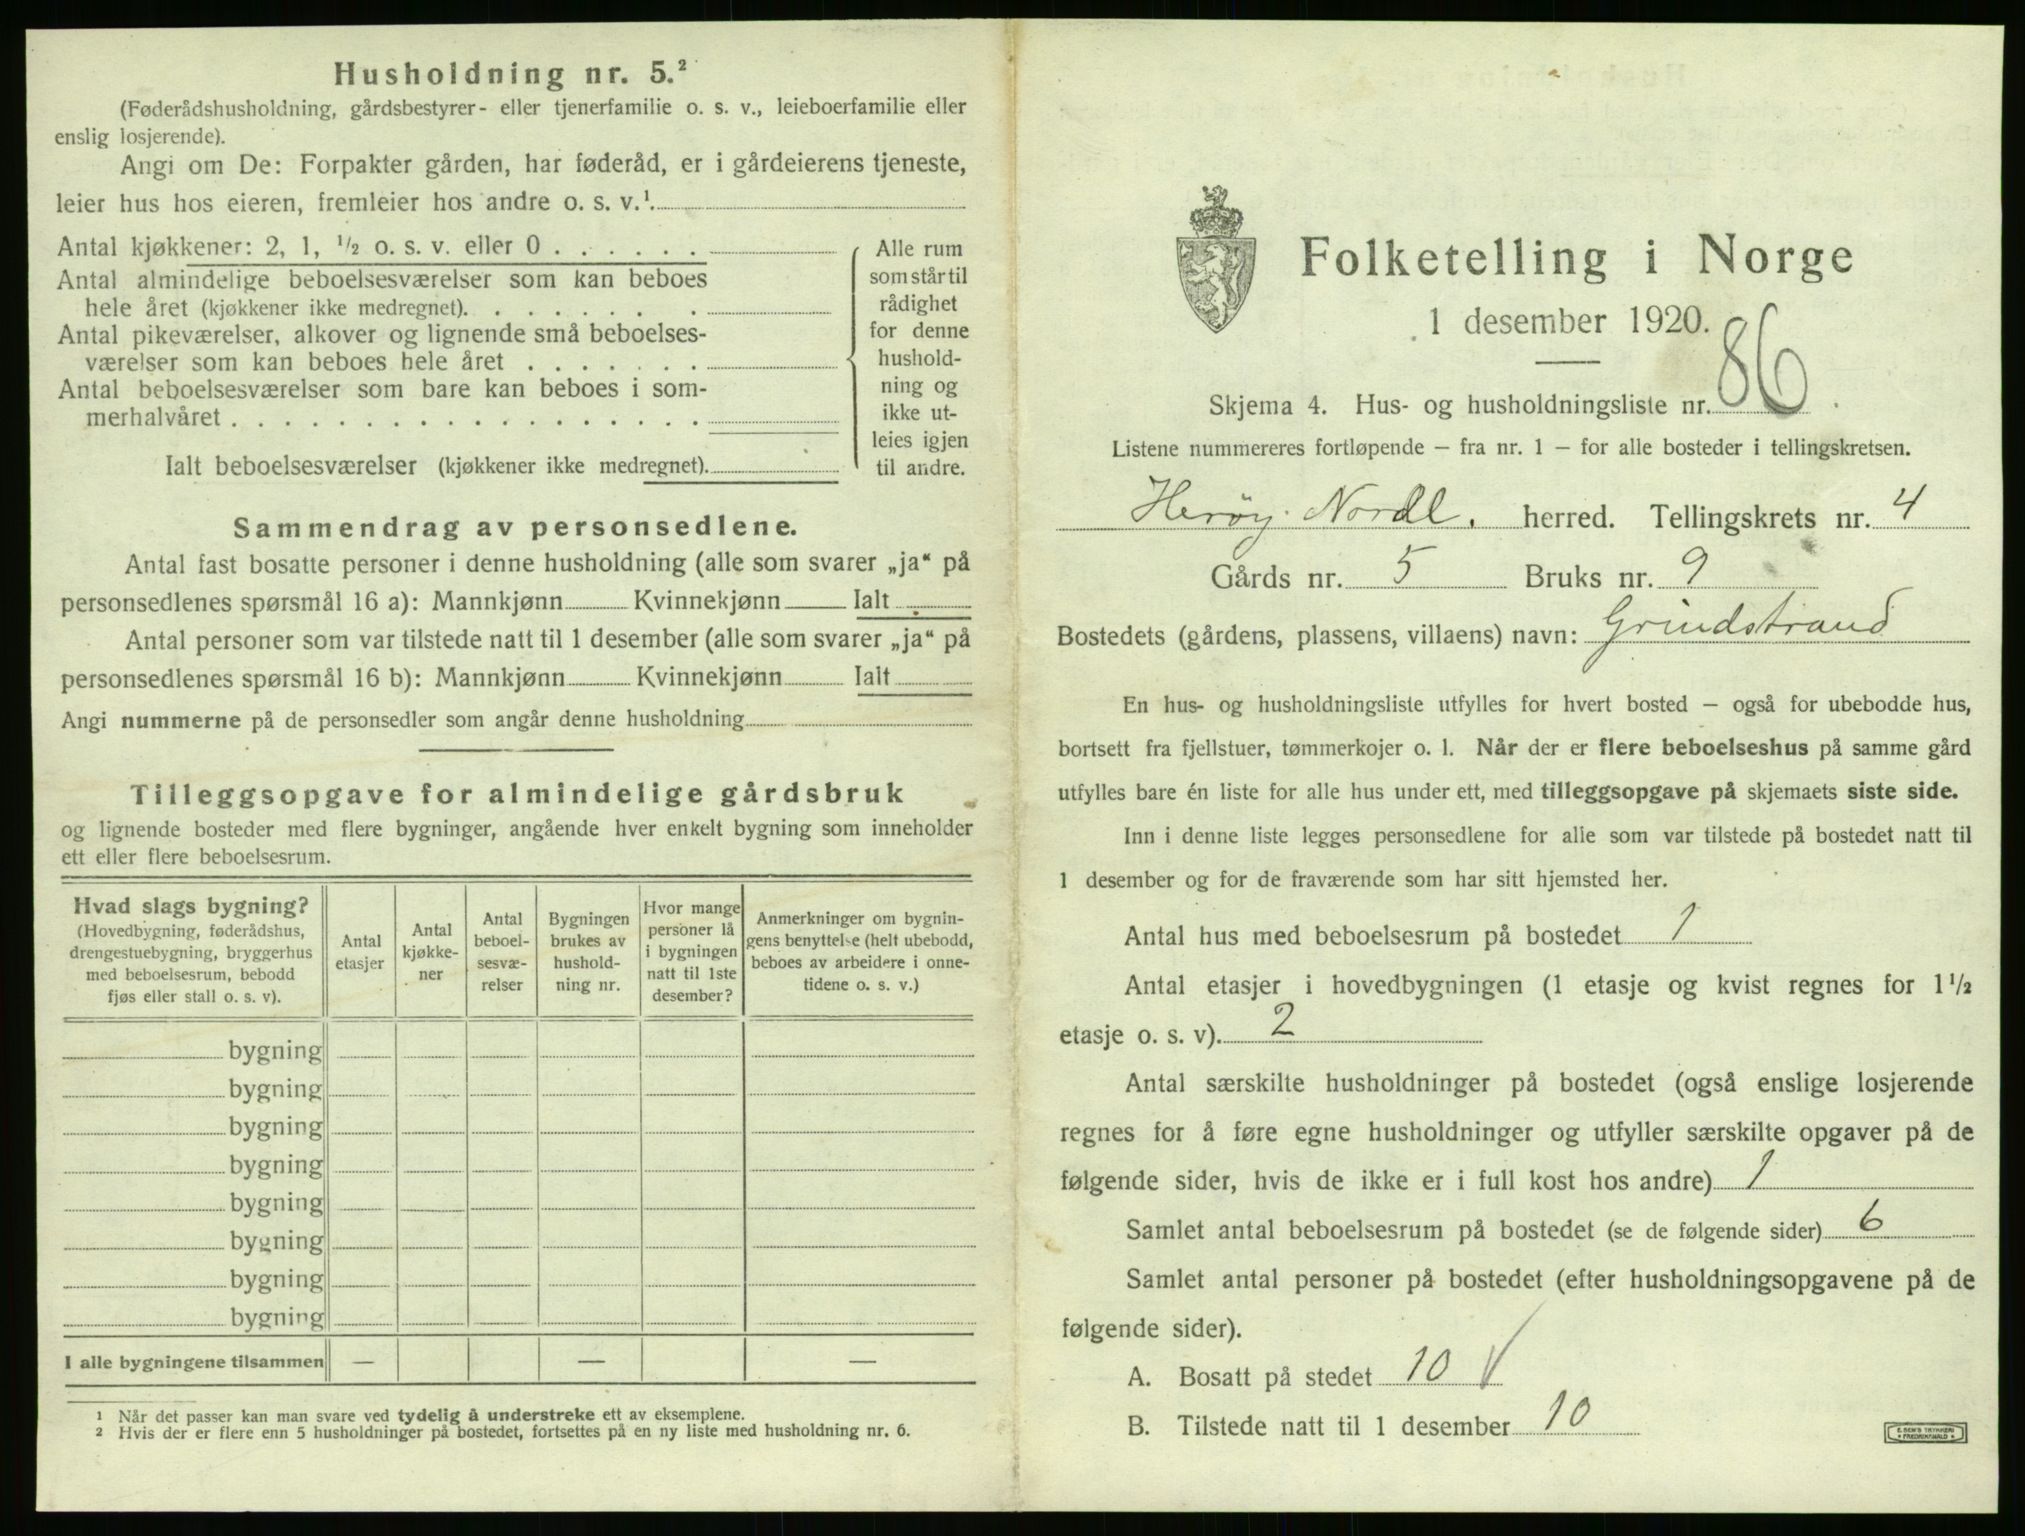 Husholdning nr. 5.²
(Føderådshusholdning, gårdsbestyrer- eller tjenerfamilie o. s. v., leieboerfamilie eller
enslig losjerende).
Angi om De: Forpakter gården, har føderåd, er i gårdeierens tjeneste,
leier hus hos eieren, fremleier hos andre o. s. v.¹
Antal kjøkkener: 2, 1, ½ o. s. v. eller 0 . . . . . .
Antal almindelige beboelsesværelser som kan beboes
hele året (kjøkkener ikke medregnet). . . . . . . .
Antal pikeværelser, alkover og lignende små beboelses-
værelser som kan beboes hele året . . . . . . .
Antal beboelsesværelser som bare kan beboes i som-
merhalvåret . . . . . . . . . . . . . . . . . .
Ialt beboelsesværelser (kjøkkener ikke medregnet).
Alle rum
som står til
rådighet
for denne
hushold-
ning og
ikke ut-
leies igjen
til andre.
Sammendrag av personsedlene.
Antal fast bosatte personer i denne husholdning (alle som svarer „ja“ på
personsedlenes spørsmål 16 a): Mannkjønn Kvinnekjønn Ialt
Antal personer som var tilstede natt til 1 desember (alle som svarer „ja“ på
personsedlenes spørsmål 16 b): Mannkjønn Kvinnekjønn Ialt
Angi nummerne på de personsedler som angår denne husholdning
Tilleggsopgave for almindelige gårdsbruk
og lignende bosteder med flere bygninger, angående hver enkelt bygning som inneholder
ett eller flere beboelsesrum.
Hvad slags bygning?
(Hovedbygning, føderådshus,
drengestuebygning, bryggerhus
med beboelsesrum, bebodd
fjøs eller stall o. s. v).
Antal
etasjer
Antal
kjøkke-
ner
Antal
beboel-
sesvæ-
relser
Bygningen
brukes av
hushold-
ning nr.
Hvor mange
personer lå
i bygningen
natt til 1ste
desember?
Anmerkninger om bygnin-
gens benyttelse (helt ubebodd,
beboes av arbeidere i onne-
tidene o. s. v.)
bygning
bygning
bygning
bygning
bygning
bygning
bygning
bygning
I alle bygningene tilsammen — — —
¹ Når det passer kan man svare ved tydelig å understreke ett av eksemplene.
² Hvis der er flere enn 5 husholdninger på bostedet, fortsettes på en ny liste med husholdning nr. 6.
Folketelling i Norge
1 desember 1920.
Skjema 4. Hus- og husholdningsliste nr. 86
Listene nummereres fortløpende – fra nr. 1 – for alle bosteder i tellingskretsen.
Herøy Nordl. herred. Tellingskrets nr. 4
Gårds nr. 5 Bruks nr. 9
Bostedets (gårdens, plassens, villaens) navn: Grindstrand
En hus- og husholdningsliste utfylles for hvert bosted – også for ubebodde hus,
bortsett fra fjellstuer, tømmerkojer o. l. Når der er flere beboelseshus på samme gård
utfylles bare én liste for alle hus under ett, med tilleggsopgave på skjemaets siste side.
Inn i denne liste legges personsedlene for alle som var tilstede på bostedet natt til
1 desember og for de fraværende som har sitt hjemsted her.
Antal hus med beboelsesrum på bostedet 1
Antal etasjer i hovedbygningen (1 etasje og kvist regnes for 1½
etasje o. s. v). 2
Antal særskilte husholdninger på bostedet (også enslige losjerende
regnes for å føre egne husholdninger og utfyller særskilte opgaver på de
følgende sider, hvis de ikke er i full kost hos andre) 1
Samlet antal beboelsesrum på bostedet (se de følgende sider) 6
Samlet antal personer på bostedet (efter husholdningsopgavene på de
følgende sider).
A. Bosatt på stedet 10 V
B. Tilstede natt til 1 desember 10